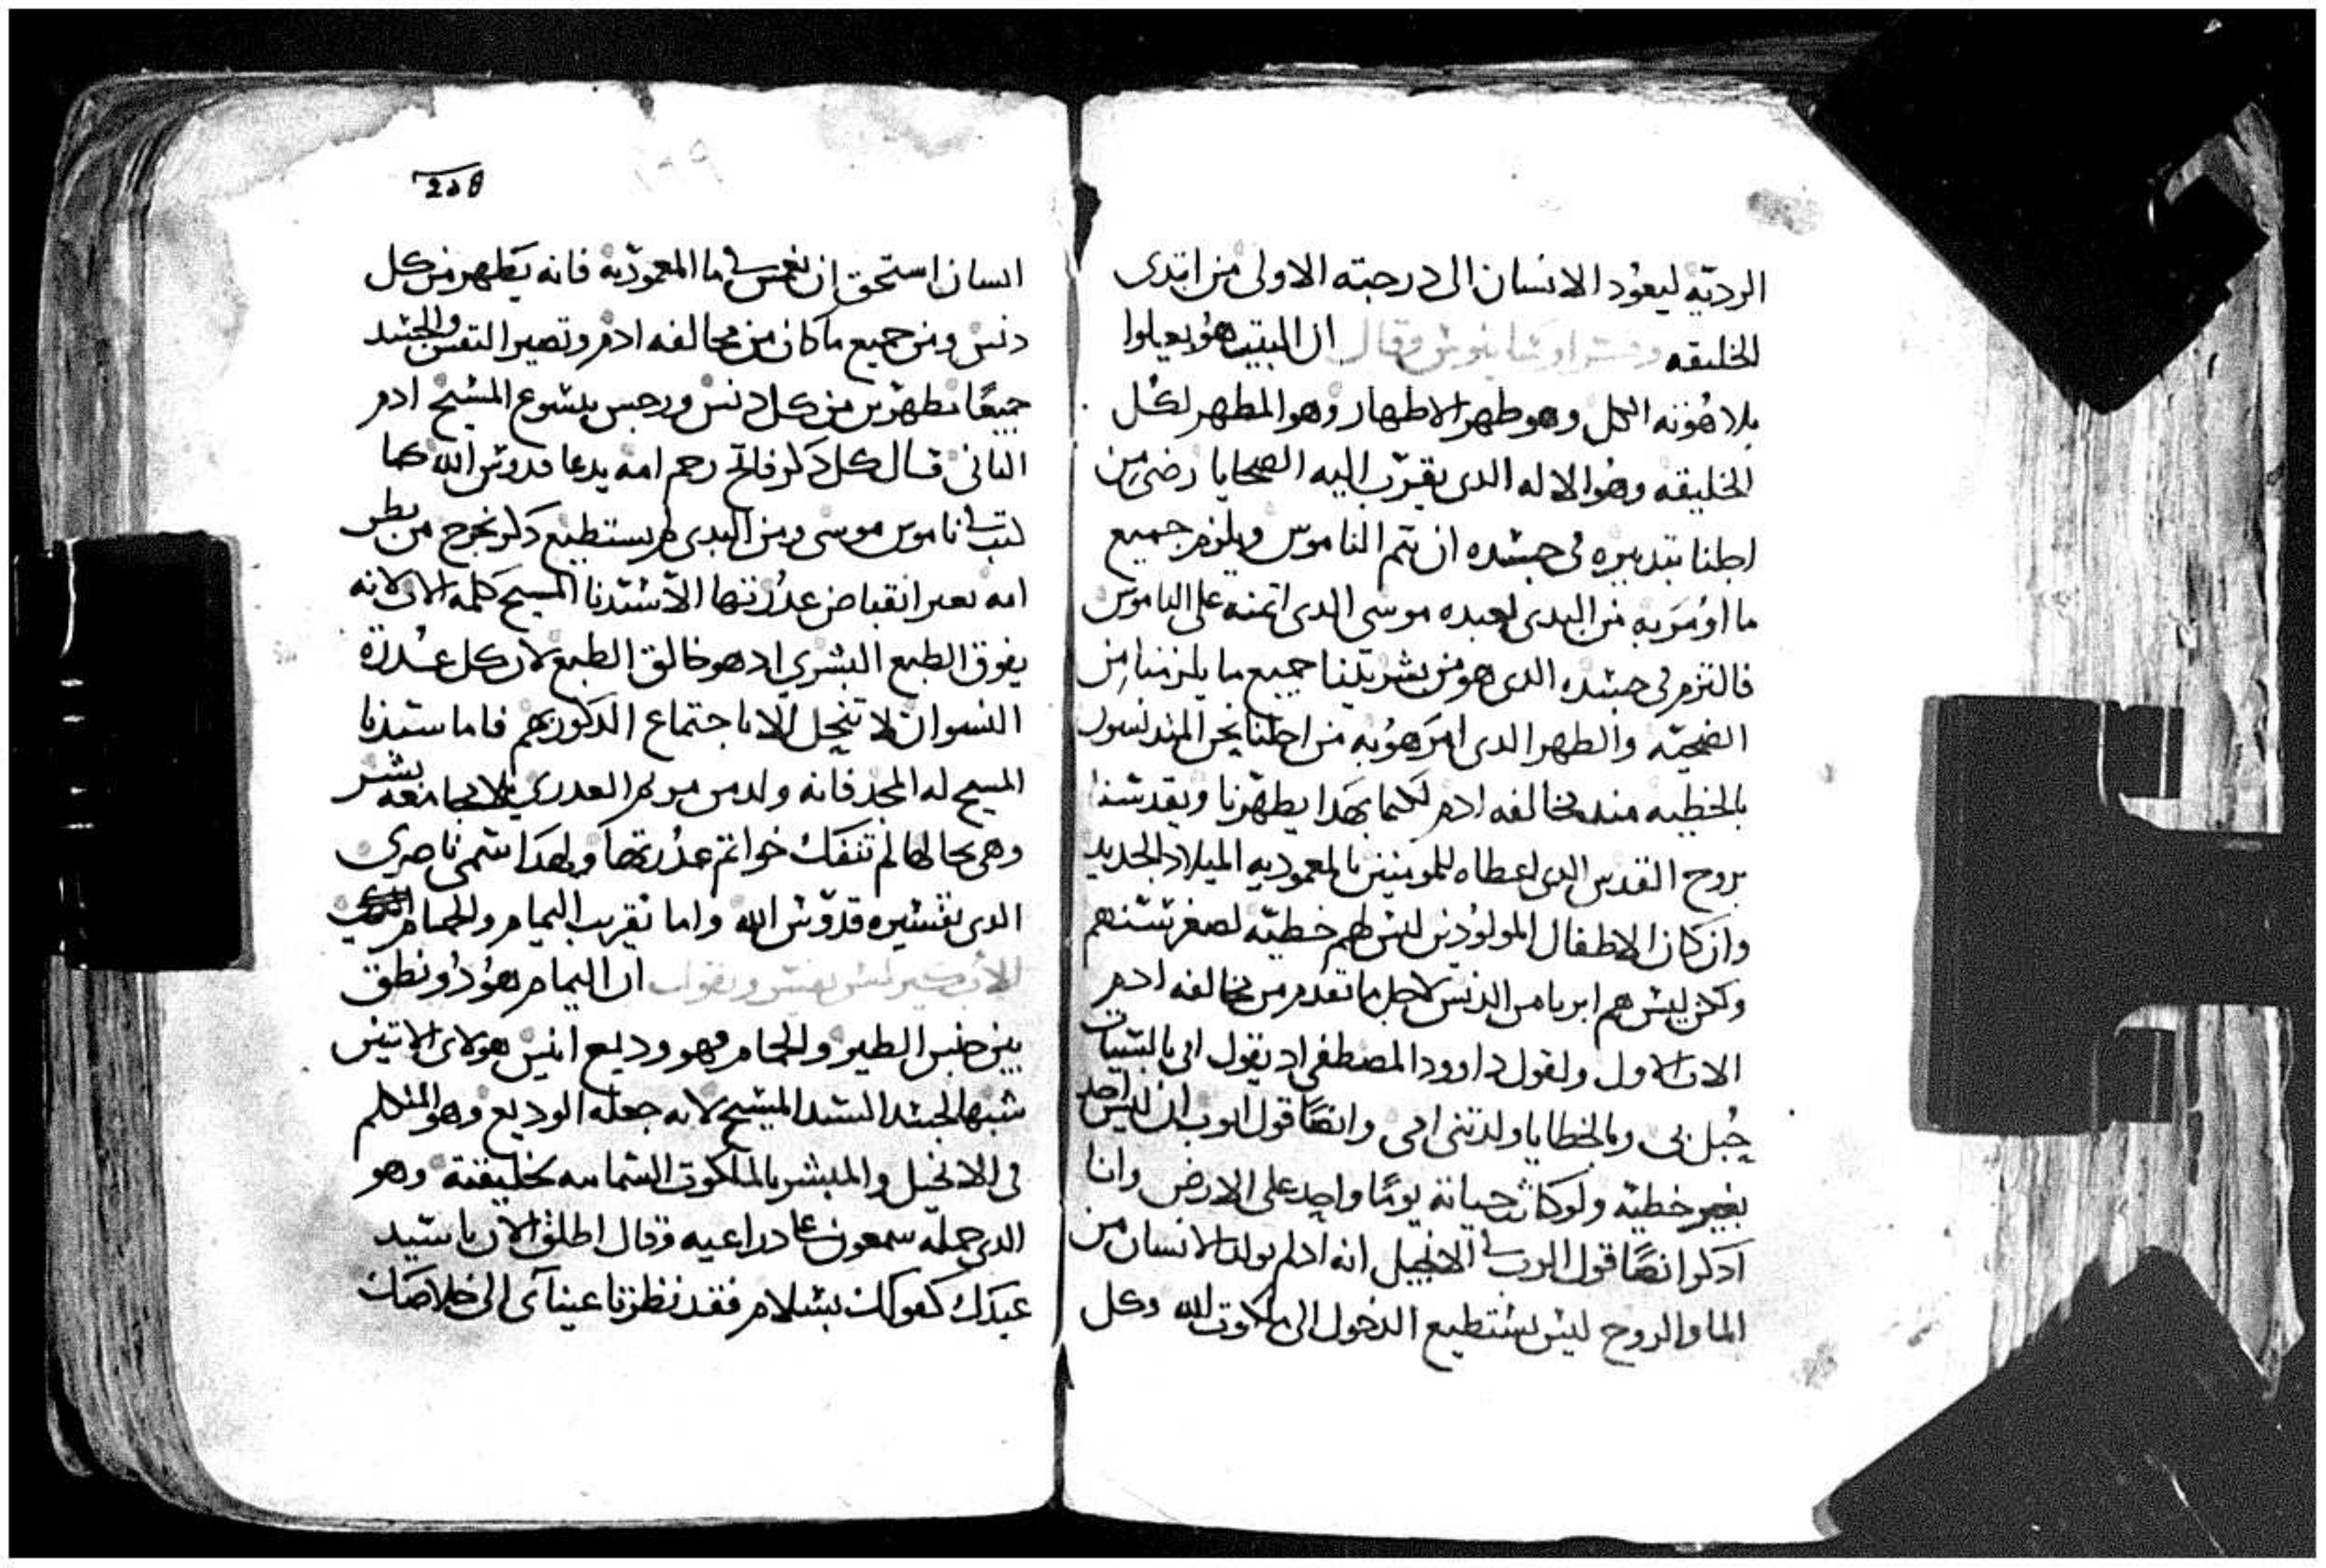 الرديّه ليعُود الانسان الى درجته الاولى من ابتدى
الخليقه وفسر اوسابيوس وقال ان المبتب هو يعيلوا
بلاهُوته الكل وهو طهر الاطهار وهو المطهر لكل
الخليقه وهُو الاله الدى يقرّب اليه الضحايا رضى من
اجلنا بتدبيره فى جسده ان يتم الناموس ويلزم جميع
ما اوُمَر به من البدى لعبده موسى الدى اتمنه على الناموس
فالتزم فى جسده الدى هو من بشريتنا جميع ما يلزمنا من
الضحيّه والطهر الدى امَر هوُ به من اجلنا نحن المندنسون
بالخطيه مند مخالفه ادم لكيما بهَدا يطهّرنا ويقدسنا
بروح القدس الدى اعطاه للمومنين بالمعموديه الميلاد الجديد
وان كان الاطفال المولوُدين ليس لهم خطيّه لصغر سنهم
ولكن ليس هم ابريا من الدنس لاجل ما تقدم من مخالفه ادم
الاب الاول ولقول داوود المصطفى اد يقول انى بالسيات
حُبل بى وبالخطايا ولدتنى امى وايضًا قول ايوب ان ليس احد
بغير خطيّه ولو كانت حياته يومًا واحد على الارض وانا
ادكر ايضًا قول الرب فى الانجيل انه ادا لم يولد الانسان من
الما والروح ليس يستطيع الدخول الى ملكوت الله وكل
208
انسان استحق ان يغمس فى ما المعموديّه فانه يَطهر من كل
دنس ومن جميع ما كان من مخالفه ادم وتصير النفس والجسد
جميعًا مطهرين من كل دنس ورجس بيسوع المسيح ادم
التانى قال كل دكر فاتح رحم امه يدعا قدوس الله كما
كتب فى ناموس موسى ومن البدى لم يستطيع دكر يخرج من بطن
امه بغير انقباض عدُرتها الا سيدنا المسيح كلمه الاب لانه
يفوق الطبع البشرى اد هو خالق الطبع لان كل عدرة
النسوان لا تنحل الا باجتماع الدكور بهم فاما سيدنا
المسيح له المجد فانه ولد من مريم العدرى بلا مجامعه بشر
وهى بحالها لم تنفك خواتم عدُرتها ولهدَا سمى ناصرى
الدى تفسيره قدّوس الله واما تقريب اليمام والحمام
ان اليمام هوُ دُو نطق
بين جنس الطير والحمام فهو وديع انيس هولاى الاتنين
شبها لجسد السيد المسيح لانه جعله الوديع وهو المتكلم
فى الانجيل والمبشر بالملكوت السماييه لخليقته وهو
الدى حمله سمعون على دراعيه وقال اطلق الان يا سيد
عبدك كقولك بسلام فقد نظرتا عيناى الى خلاصك